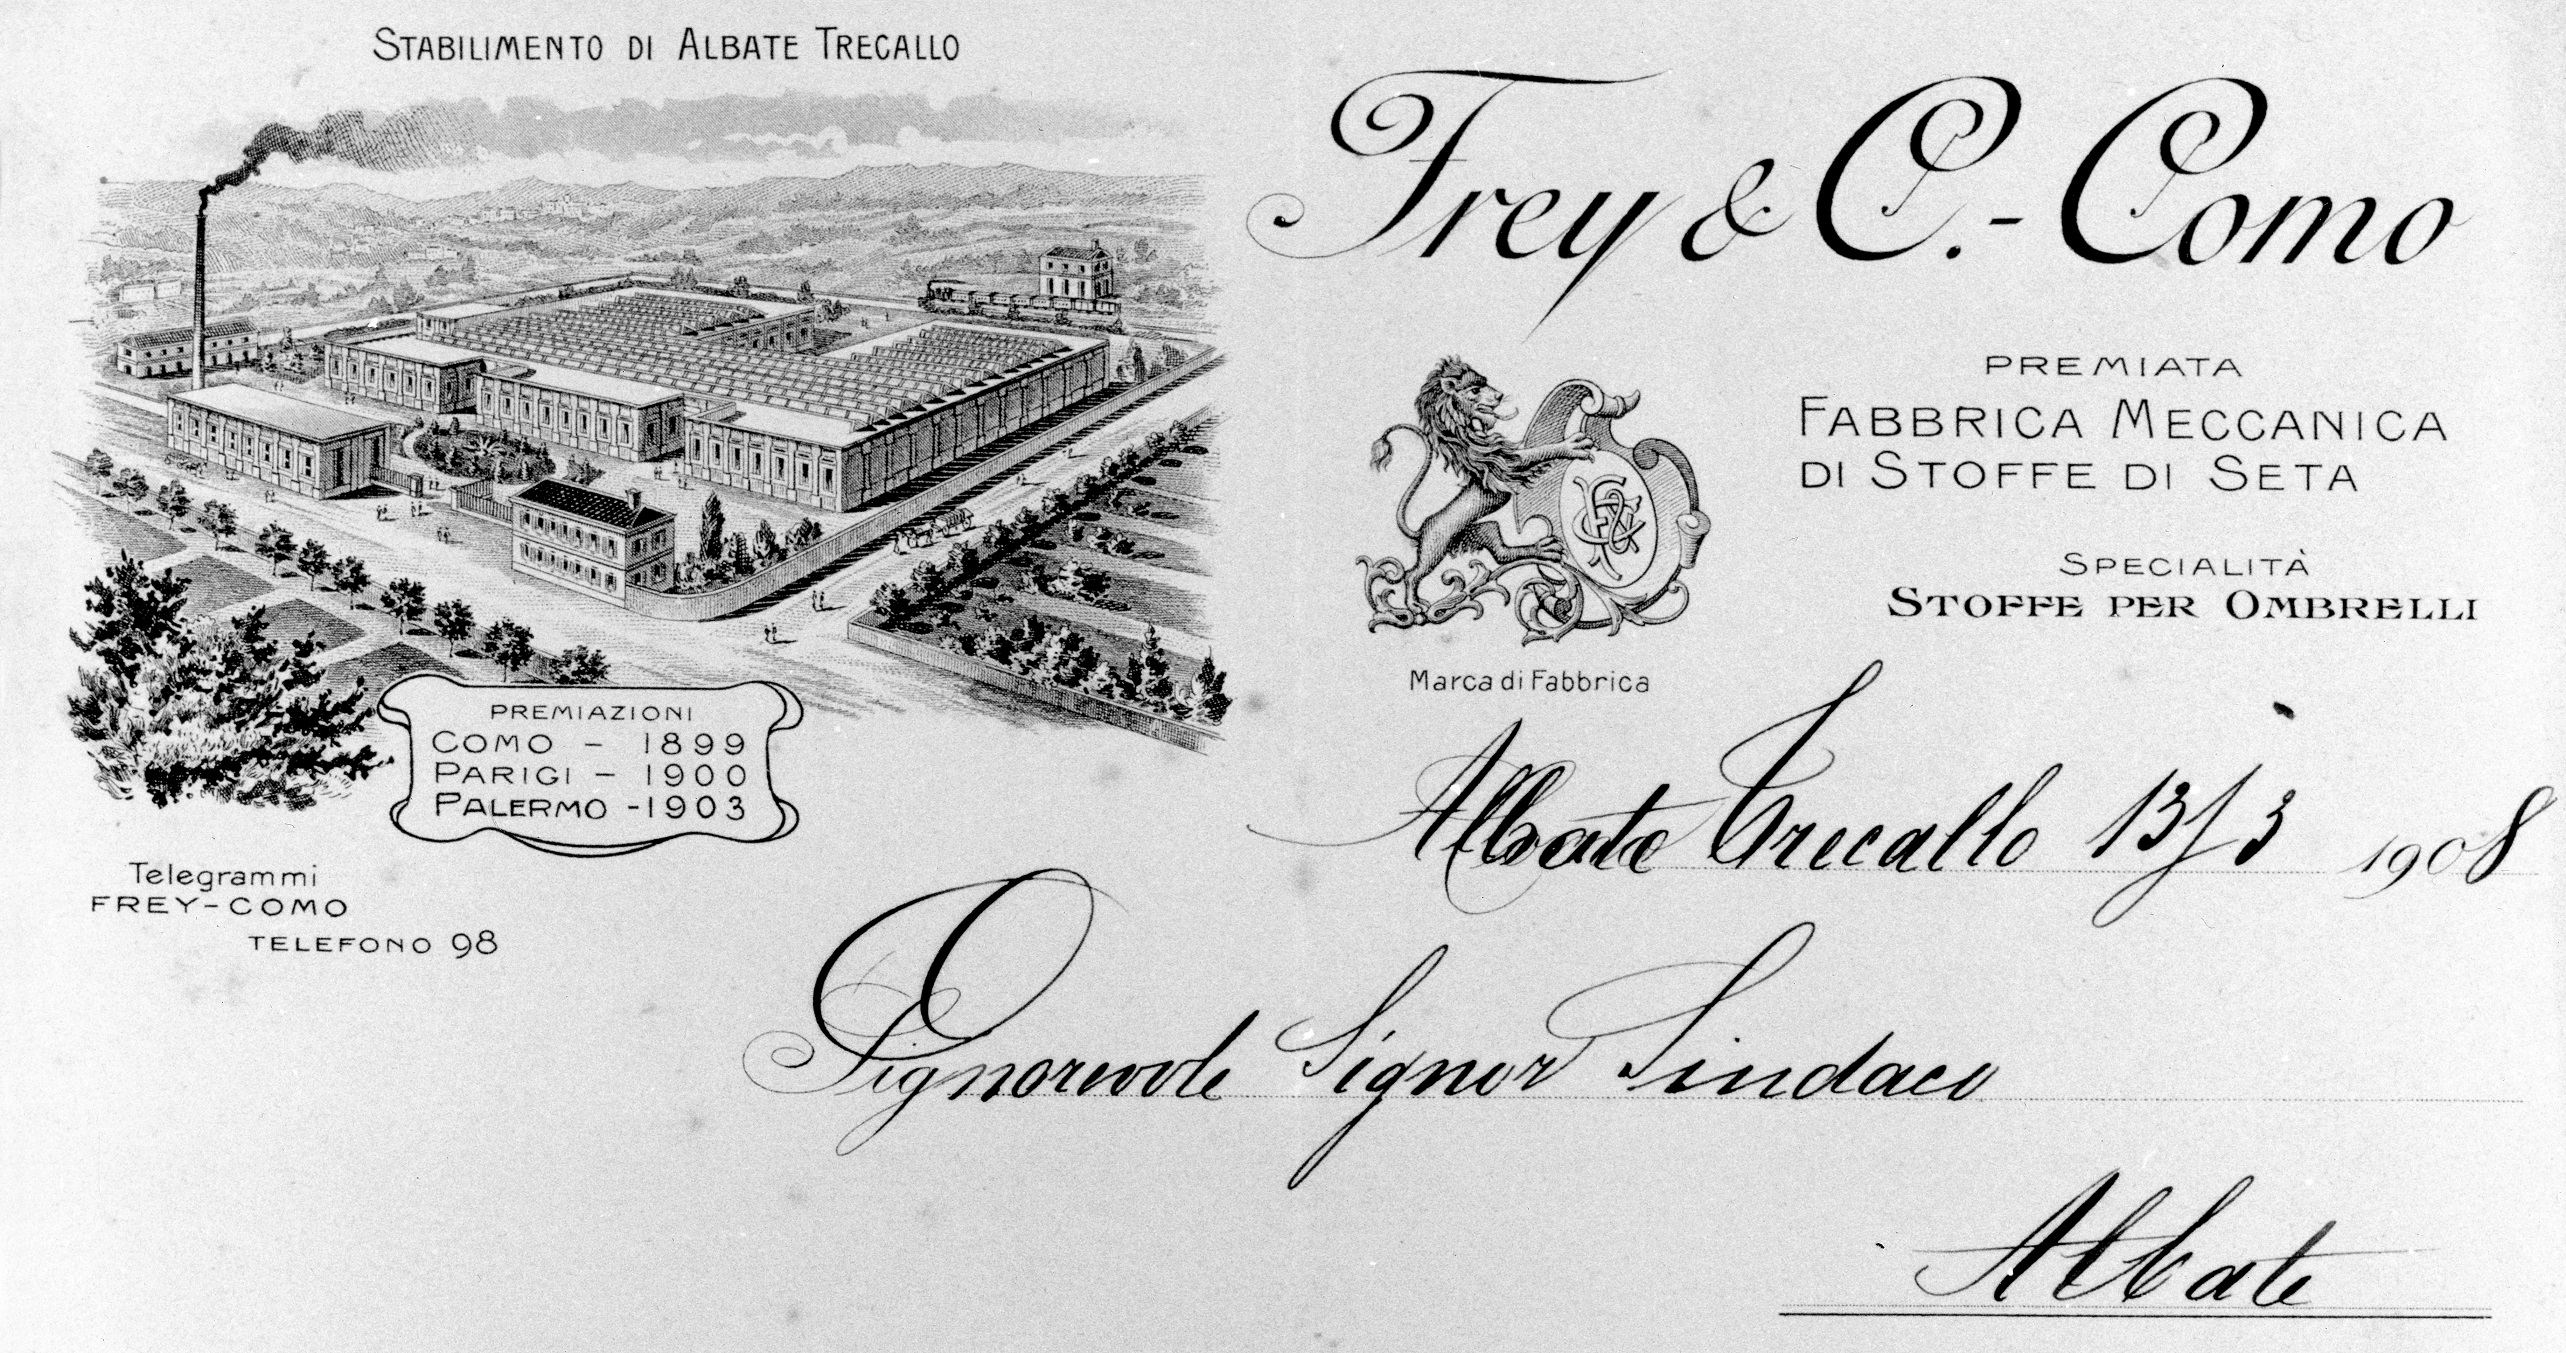 STABILIMENTO DI ALBATE TRECALLO
Frey & C. - Como
PREMIATA
FABBRICA MECCANICA
DI STOFFE DI SETA
SPECIALITÀ
STOFFE PER OMBRELLI
Marca di Fabbrica
PREMIAZIONI
COMO - 1899
PARIGI - 1900
PALERMO - 1903
Telegrammi
FREY-COMO
TELEFONO 98
Albate Trecallo 13/3 1908
Signor Sindaco
Albate